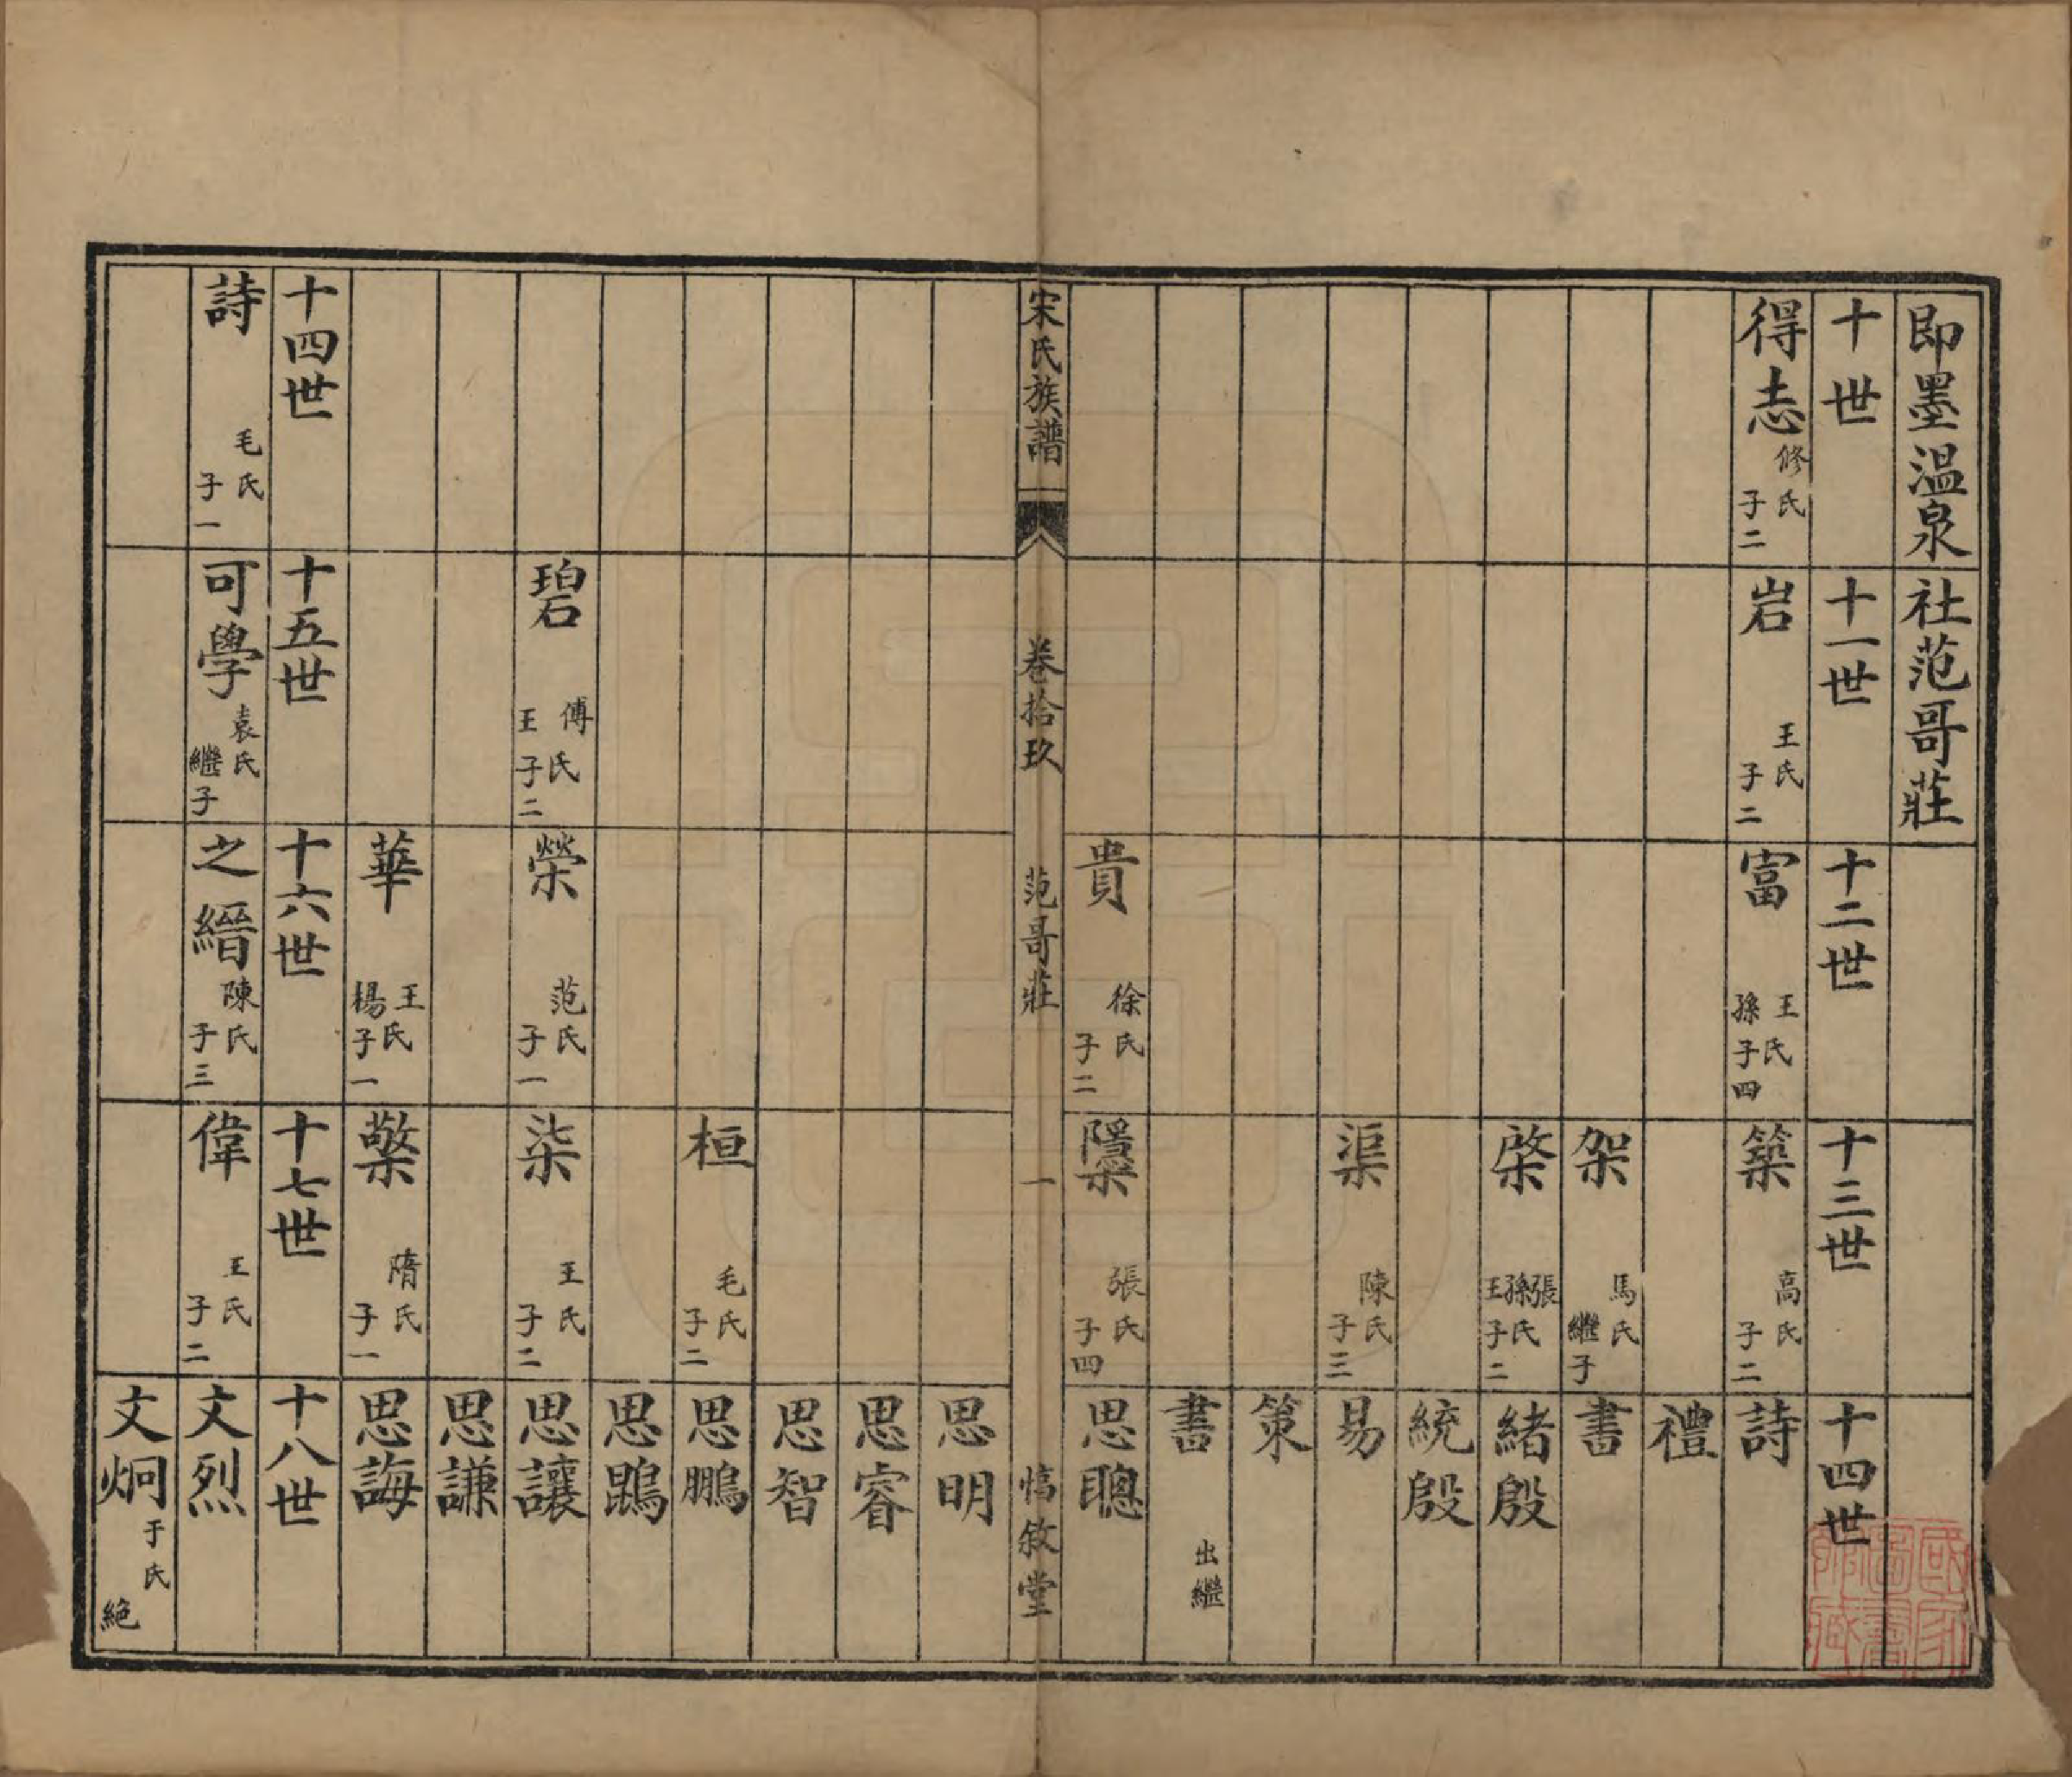 即墨溫泉社范哥莊
十世
十一世
十二世
十三世
十四世
得志 修氏 子二
岩 王氏 子二
富 王孫氏 子四
築 高氏 子二
詩
禮
架 馬氏 繼子
書
棨 張孫王氏 子二
緒殷
統殷
渠 陳氏 子三
易
策
書 出繼
貴 徐氏 子二
檃 張氏 子四
思聰
宋氏族譜 卷拾玖 范哥莊 一 惇敘堂
思明
思睿
思智
桓 毛氏 子二
思鵬
思鵾
碧 傅王氏 子二
榮 范氏 子一
柒 王氏 子二
思讓
思謙
華 王楊氏 子一
檠 隋氏 子一
思誨
十四世
十五世
十六世
十七世
十八世
詩 毛氏 子一
可學 袁氏 繼子
之縉 陳氏 子三
偉 王氏 子二
文烈
文炯 于氏 絕
國家圖書館藏